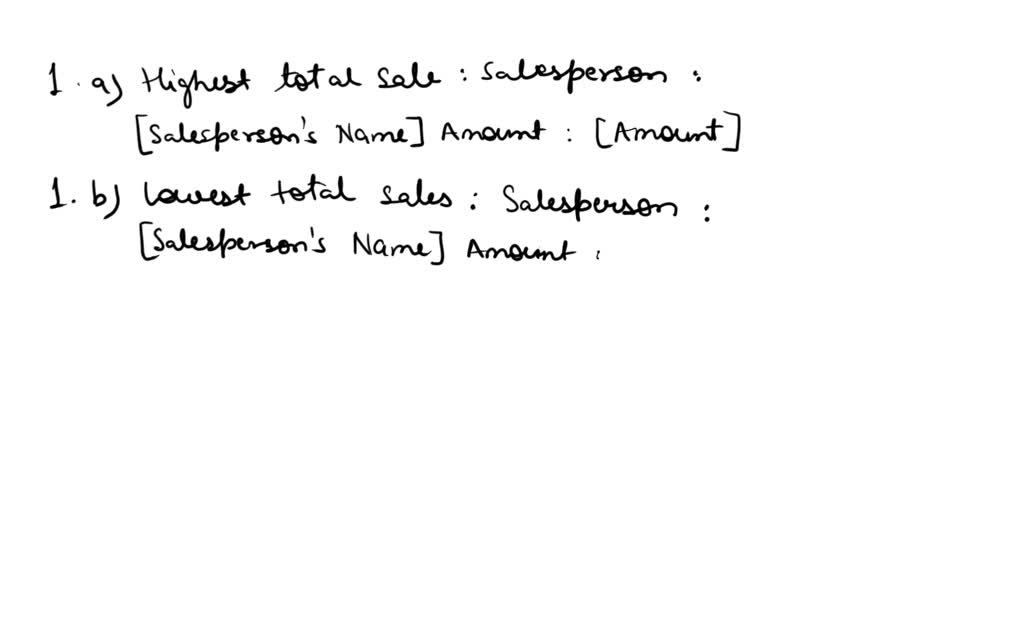 1. a) Highest total sale : Salesperson :
[Salesperson's Name] Amount : [Amount]
1. b) Lowest total sales : Salesperson :
[Salesperson's Name] Amount :